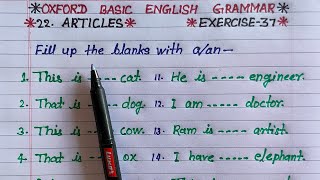 *OXFORD BASIC ENGLISH GRAMMAR*
*22. ARTICLES* *EXERCISE-37*
Fill up the blanks with a/an—
1. This is ---- cat. 11. He is ----- engineer.
2. That is ---- dog. 12. I am ----- doctor.
3. This is ---- cow. 13. Ram is ----- artist.
4. That is ---- ox 14. I have ----- elephant.